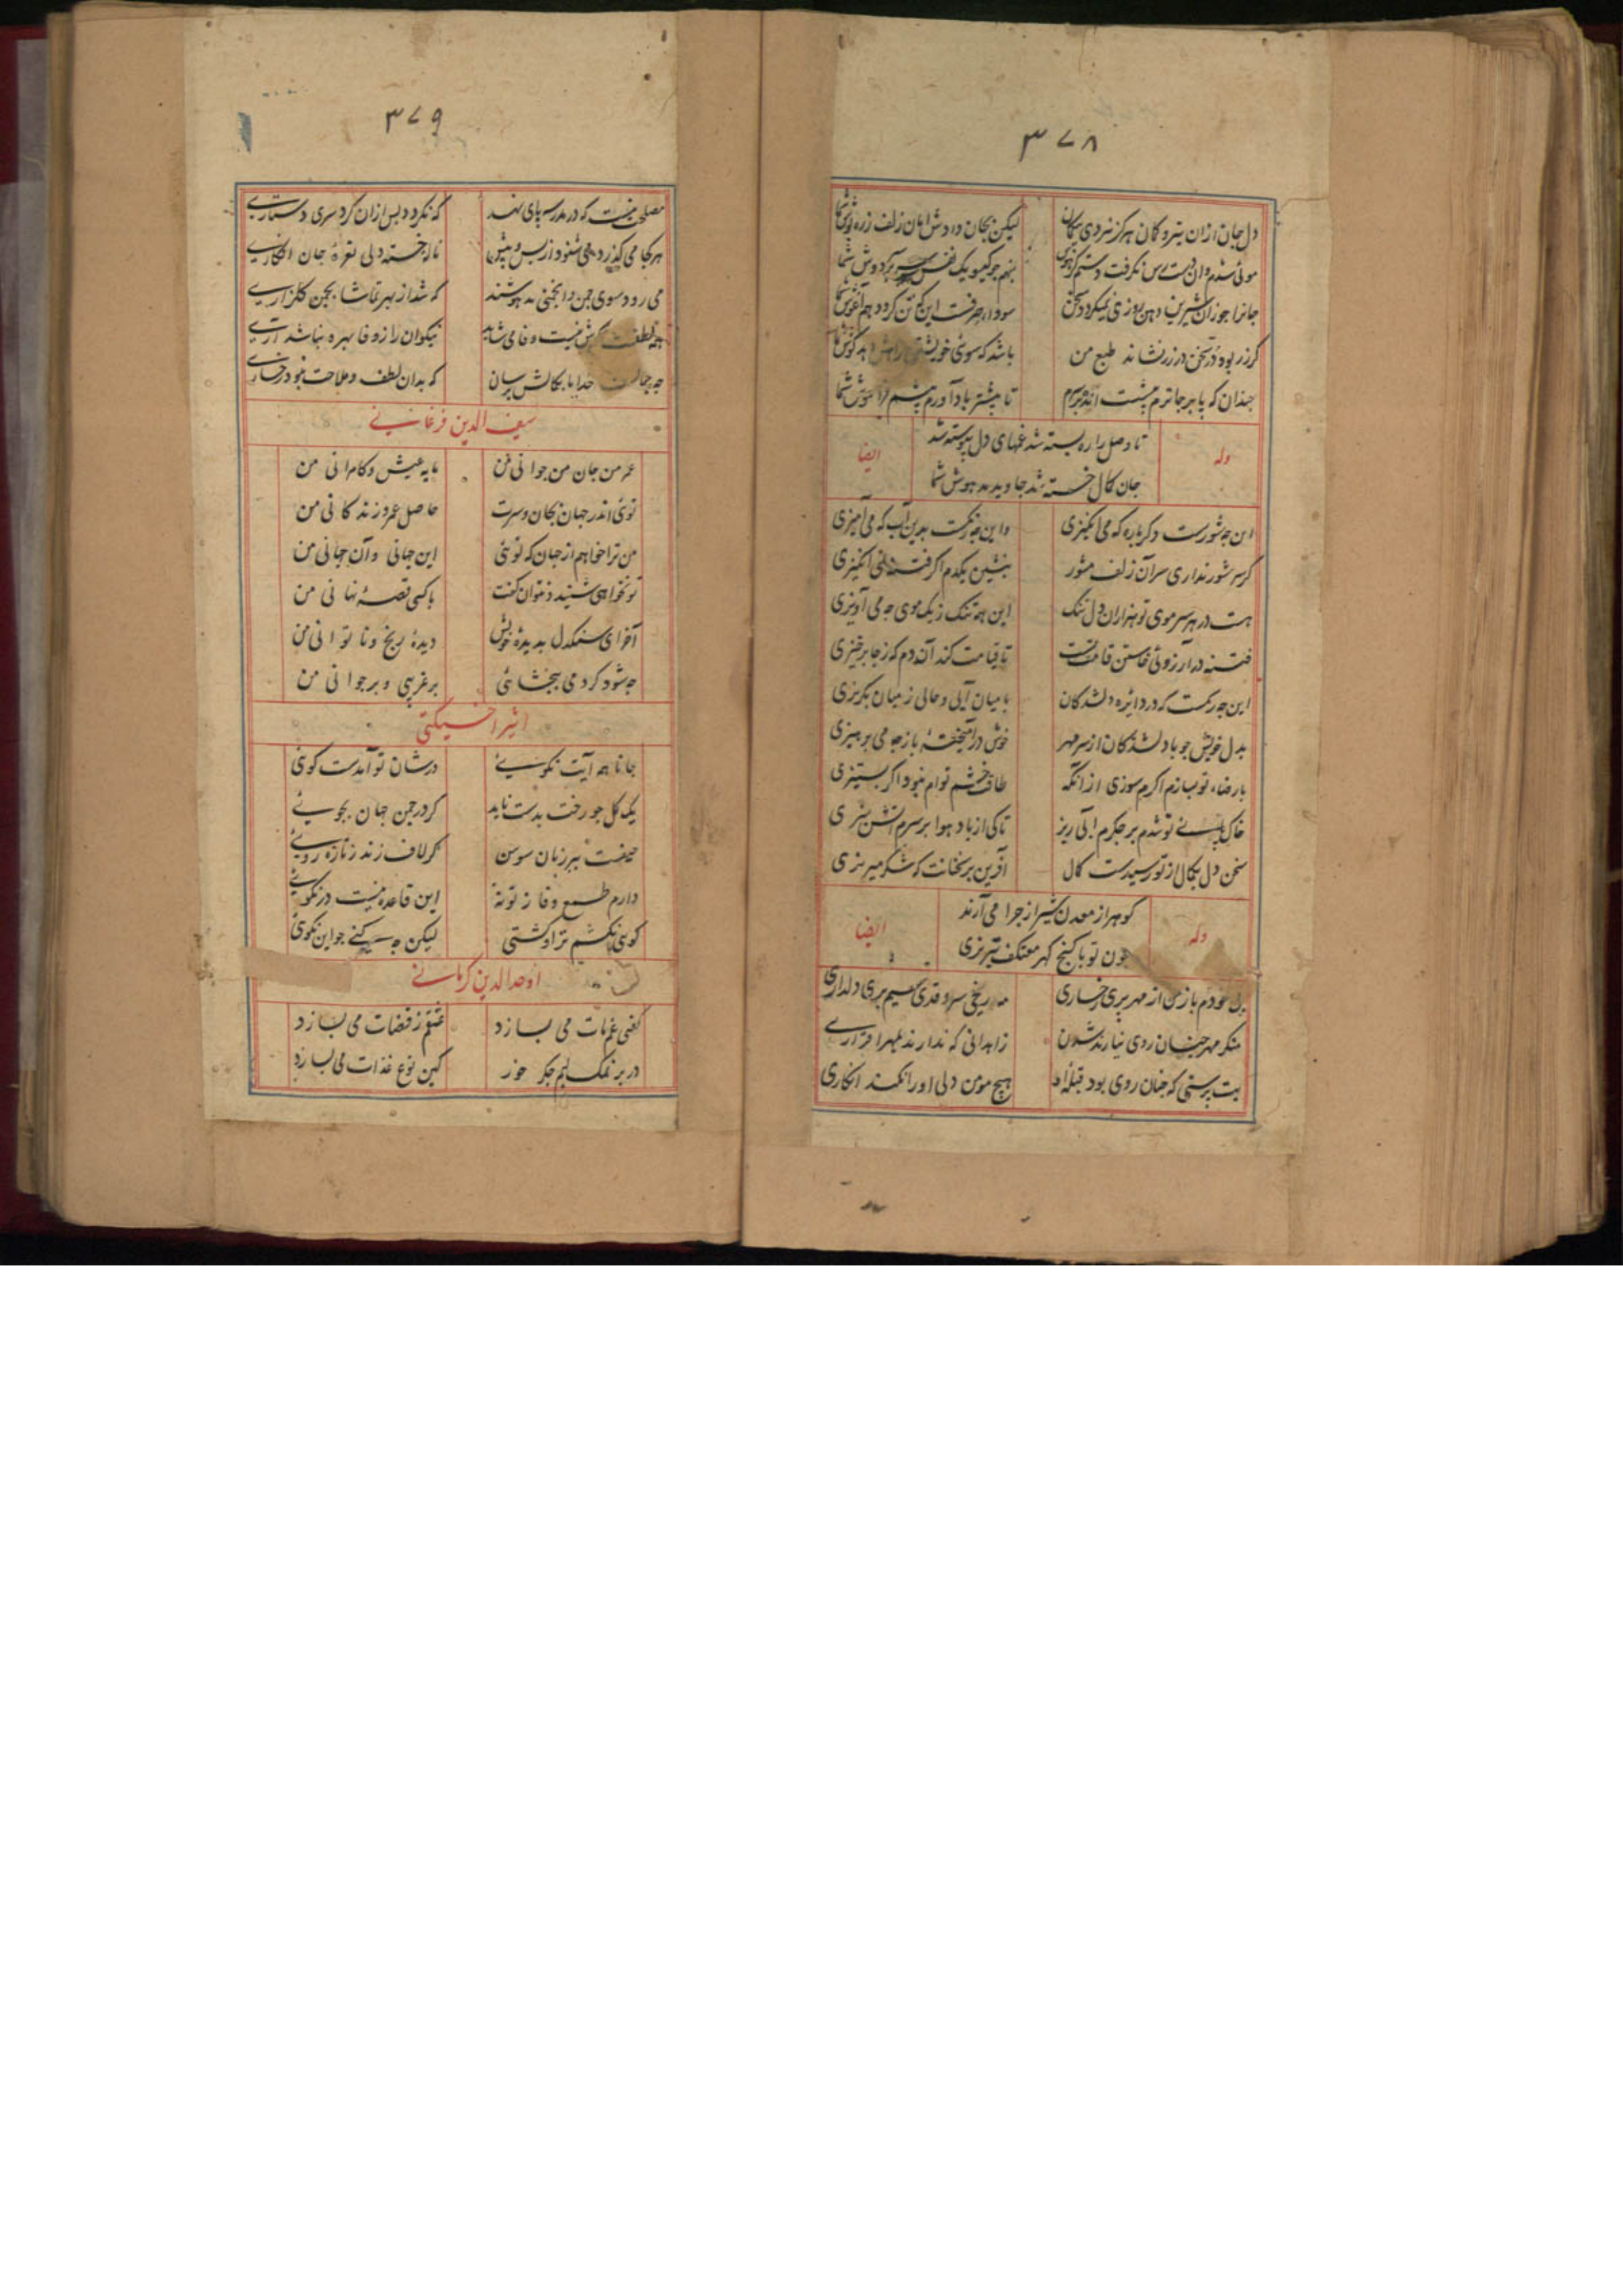 ٣٧٨
دل جان ازان تیر و کمان هرگز نبردی یکمان لیکن بجان دادش امان زلف زره پوش شما
موئی شدم وان دست رس نگرفت دستم بنهم جو کیسو یک نفس سر بر دوش شما
جانرا جوزان شیرین دهن روزی نمیکردد سخن سودا این کین تن کردد هم آغوش شما
کرزر بود در سخن درزر نشاند طبع من باشد که سوی خویشتن راهش دهد کوش شما
جندان که پا برجاترم تا بیشتر یاد آورم بیشم فراموش شما
وله
تا وصل را ره بسته شد غمهای دل پیوسته شد
جان کمال خسته شد جاوید مدهوش شما
ایضا
این جه شورست دکرباره که می انکیزی واین جه رنکست بدین آب که می آمیزی
کر سر شور نداری سر آن زلف مشور بنشین یکدم اکر فتنه نمی انکیزی
هست در هر سر موی تو هزاران دل تنک این همه تنک زیک موی جه می آویزی
فتنه در آرزوئی خاستن قامت تست تا قیامت کند آندم که زجا برخیزی
این جه رسمست که در دایره دلشدکان با میان آیی و حالی زمیان بکریزی
بدل خویش جو با دلشدکان از سر مهر خوش در آمیختهٔ باز جه می پرهیزی
با رضاء تو بسازم اکرم سوزی ازانکه طاقت خشم توام نبود اکر بستیزی
خاک پای تو شدم بر جکرم آبی ریز تا کی از باد هوا بر سرم آتش بیزی
سخن دل بکمال از تو رسیدست کمال آفرین بر سخنانت که شکر میریزی
وله
کوهر از معدن شیراز جرا می آرند
جون تو با کنج کهر معتکف تبریزی
ایضا
دل خودم باز من از مهر پری رخساری مه رخی سرو قدی سیم بری دلداری
منکر مهر جنان روی نیارند شدن زاهدانی که ندارند بهر اقراری
بت پرستی که جنان روی بود قبلهٔ او هیچ مومن دلی او را نکند انکاری
٣٧٩
مصلحت نیست که در مدرسه پای نهد که نکردد پس ازان کرد سری دستاری
هر کجا می کذرد می شنود از پس و پیش ناله خسته دلی نعرهٔ جان افکاری
می رود سوی جمن وانجمنی مدهوشند که شد از بهر تماشا بجمن کلزاری
همه لطفست نیست وفا می شاید نیکوان را ز وفا بهره نباشد آری
جه جمالست خدایا بکمالش برسان که بدان لطف و ملاحت نبود رخساری
سیف الدین فرغانی
عمر من جان من جوانی من مایه عیش و کامرانی من
توئی اندر جهان بجان و سرت حاصل عمر و زندکانی من
من ترا خواهم از جهان که توئی این جهانی وان جهانی من
تو نخواهی شنید و نتوان کفت با کسی قصهٔ نهانی من
آخر ای سنکدل بدیدهٔ خویش دیدهٔ رنج و ناتوانی من
جه شود کر دمی ببخشائی بر غریبی و بر جوانی من
اثیر اخسیکتی
جانا همه آیت نکویی در شان تو آمدست کوئی
یک کل جو رخت بدست ناید کر در جمن جهان بجویی
حیفست ببر زبان سوسن کر لاف زند ز تازه رویی
دارم طمع وفا ز تو نه این قاعده نیست در نکویی
کوئی نکشم ترا و کشتی لیکن جه کنی جو این نکوئی
اوحد الدین کرمانی
کفتی غم مات می بسازد عشقم ز قضات می بسازد
در بر نمک لبم جکر خور کین نوع غذات می بسازد